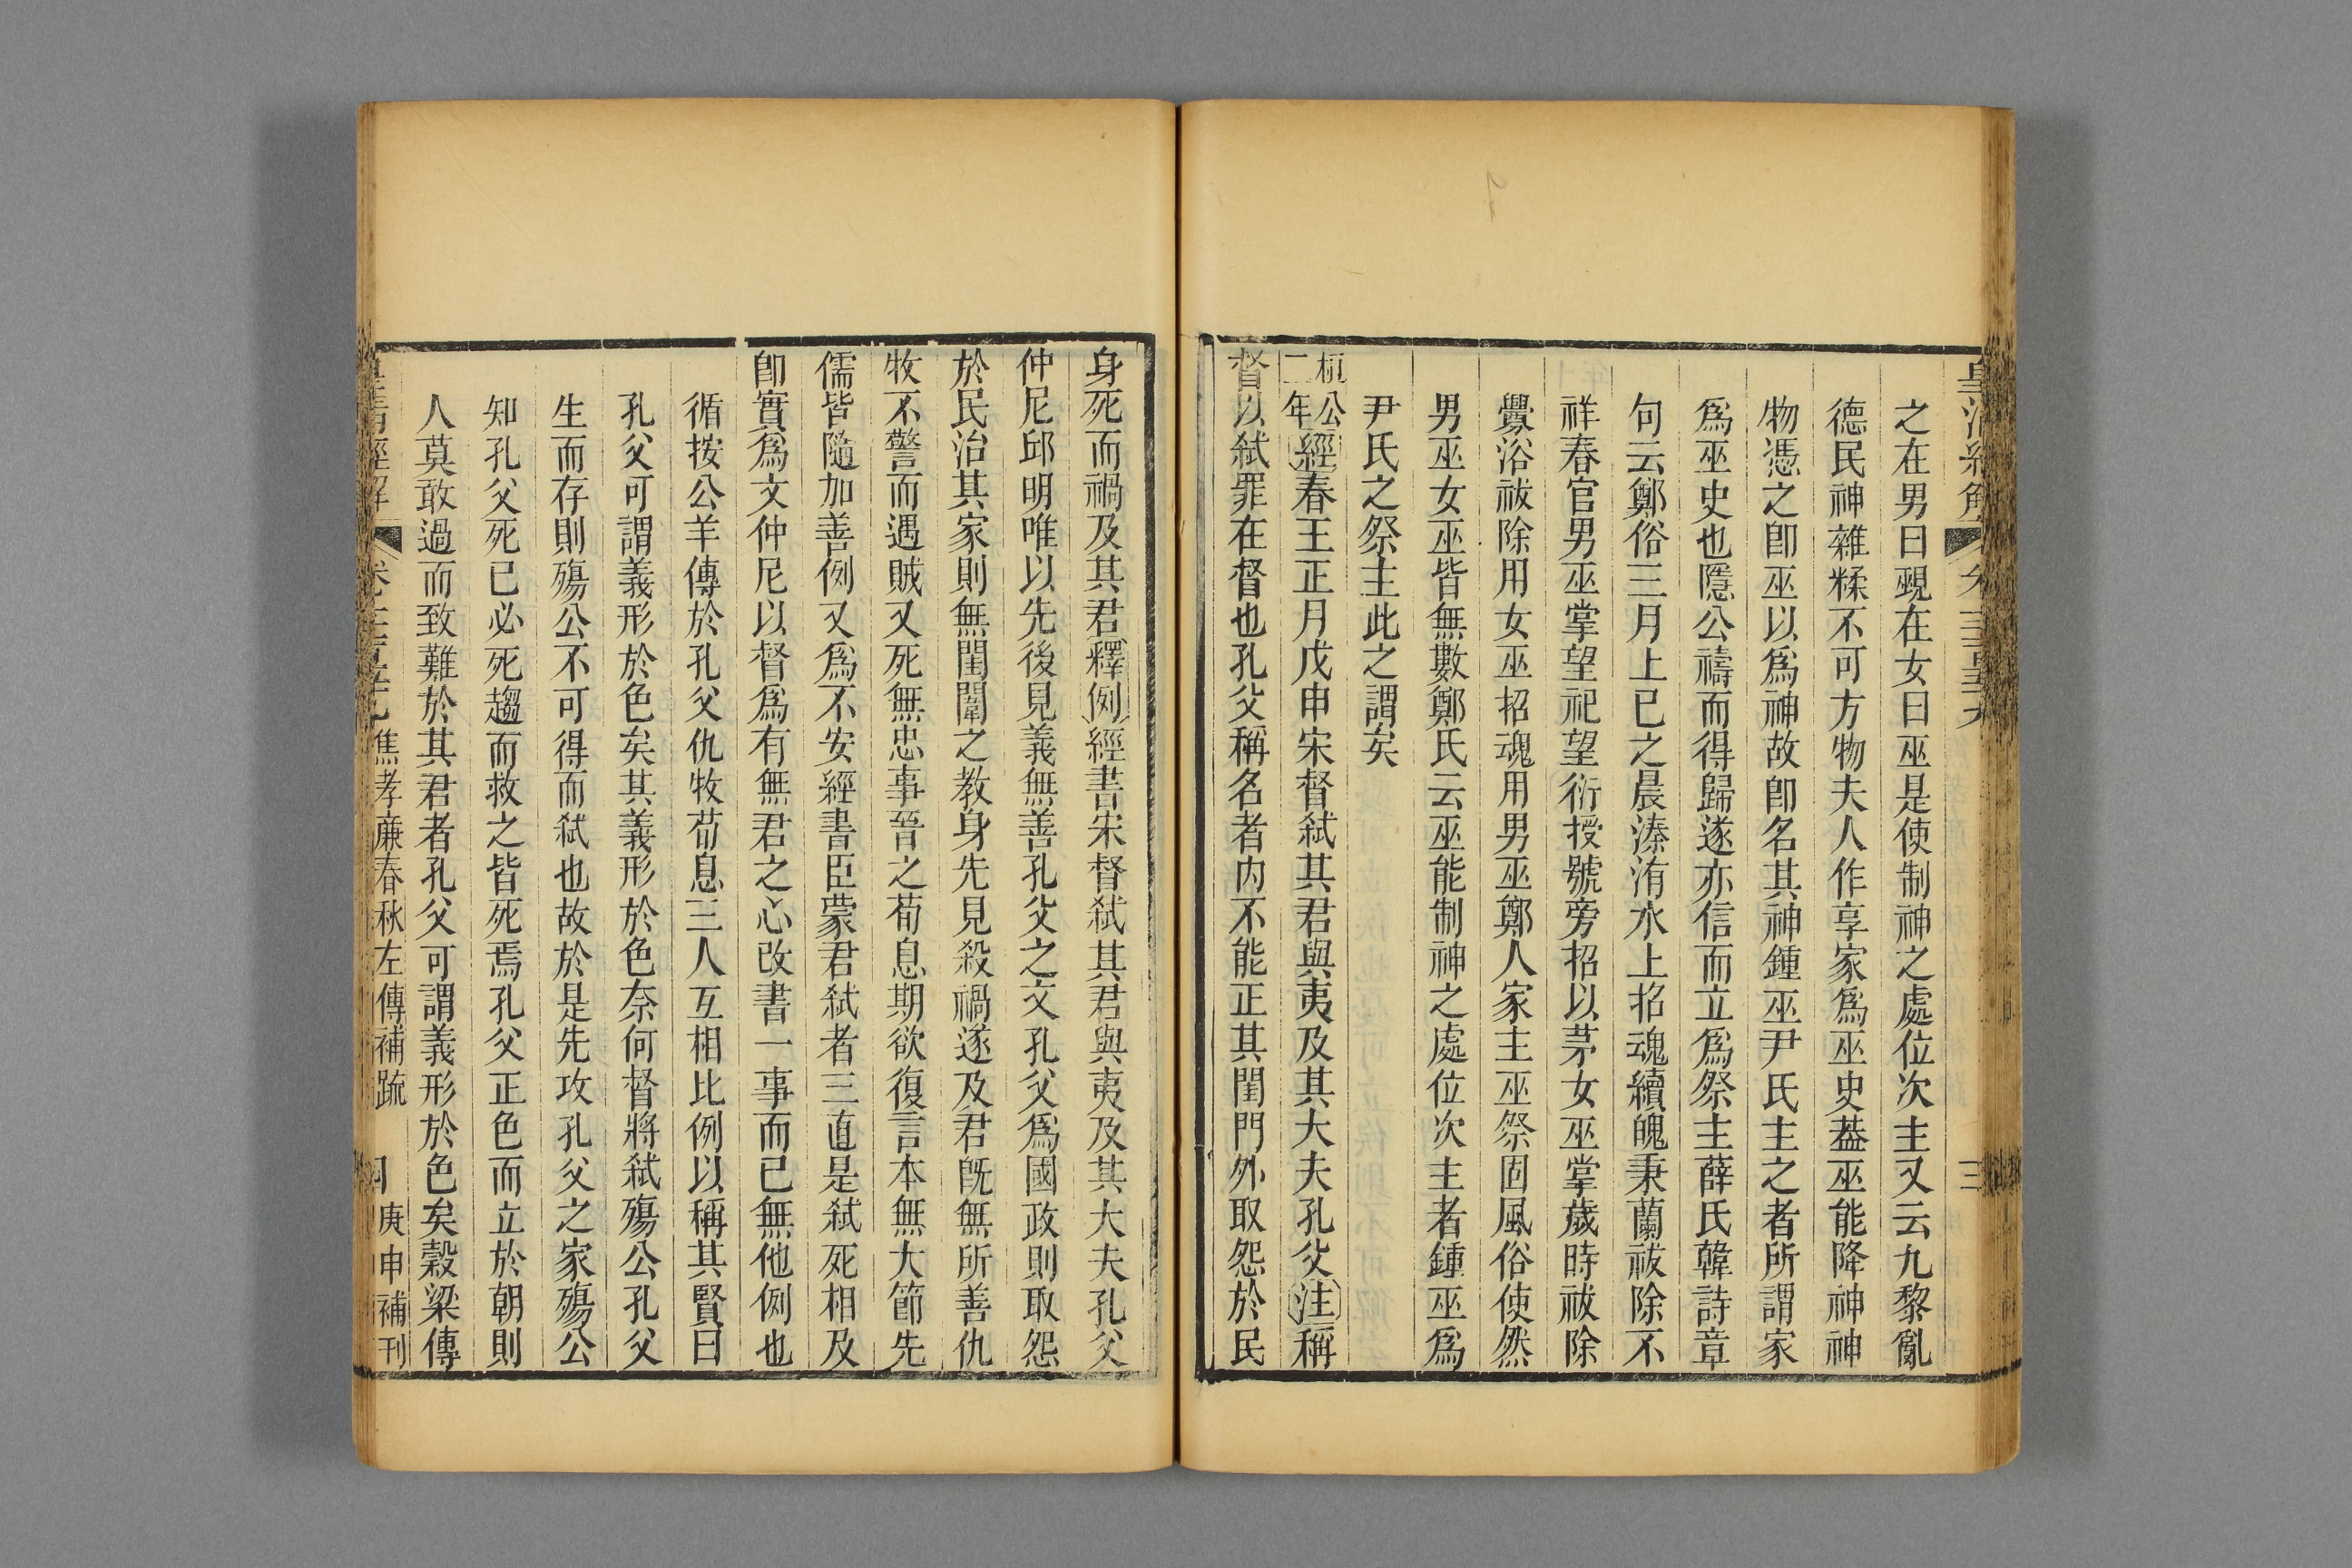 之在男曰覡在女曰巫是使制神之處位次主又云九黎亂
德民神雜糅不可方物夫人作享家爲巫史葢巫能降神神
物憑之卽巫以爲神故卽名其神鍾巫尹氏主之者所謂家
爲巫史也隱公禱而得歸遂亦信而立爲祭主薛氏韓詩章
句云鄭俗三月上巳之晨溱洧水上招魂續魄秉蘭祓除不
祥春官男巫掌望祀望衍授號旁招以茅女巫掌歲時祓除
釁浴祓除用女巫招魂用男巫鄭人家主巫祭固風俗使然
男巫女巫皆無數鄭氏云巫能制神之處位次主者鍾巫爲
尹氏之祭主此之謂矣
桓公二年經春王正月戊申宋督弑其君與夷及其大夫孔父注稱
督以弑罪在督也孔父稱名者內不能正其閨門外取怨於民
身死而禍及其君釋例經書宋督弑其君與夷及其大夫孔父
仲尼邱明唯以先後見義無善孔父之文孔父爲國政則取怨
於民治其家則無閨閫之教身先見殺禍遂及君旣無所善仇
牧不警而遇賊又死無忠事晉之荀息期欲復言本無大節先
儒皆隨加善例又爲不安經書臣蒙君弑者三直是弑死相及
卽實爲文仲尼以督爲有無君之心改書一事而已無他例也
循按公羊傳於孔父仇牧荀息三人互相比例以稱其賢曰
孔父可謂義形於色矣其義形於色奈何督將弑殤公孔父
生而存則殤公不可得而弑也故於是先攻孔父之家殤公
知孔父死已必死趨而救之皆死焉孔父正色而立於朝則
人莫敢過而致難於其君者孔父可謂義形於色矣穀梁傳
皇清經解 焦孝廉春秋左傳補疏 四 庚申補刊